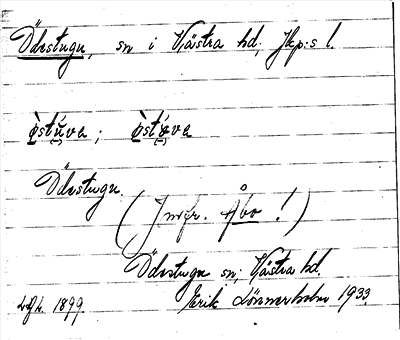 Ödestugu, sn i Västra hd, Jkp:s l.
òstúva; òstǿva
Ödestugu.
(Jmfr. Åbo!)
Ödestugu sn; Västra hd.
1899 Erik Lönnerholm 1933